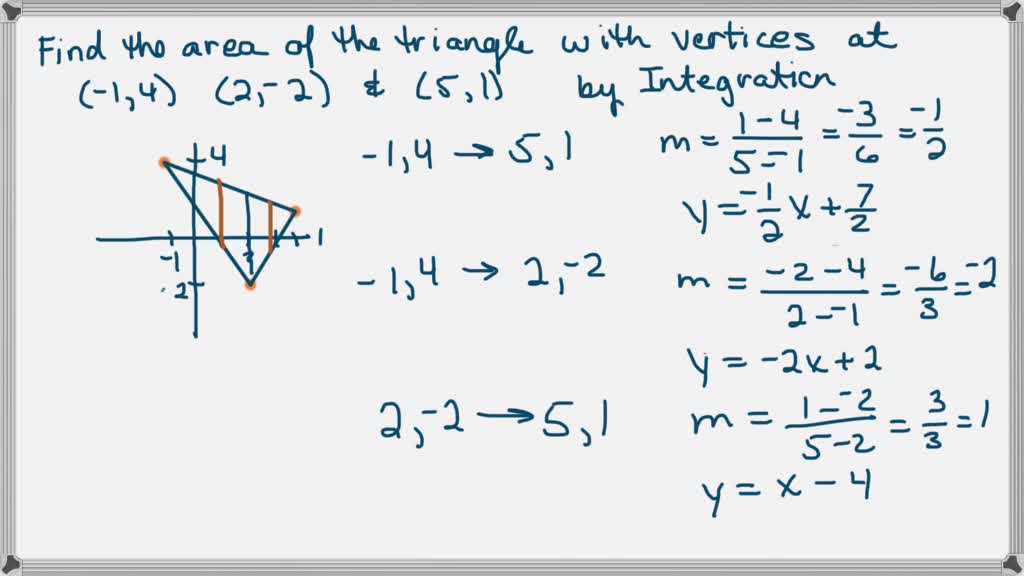 Find the area of the triangle with vertices at
(-1,4) (2,-2) & (5,1) by Integration
-1,4 → 5,1
m = 1-4/5--1 = -3/6 = -1/2
y = -1/2 x + 7/2
4
-1
2
1
-2
-1,4 → 2,-2
m = -2-4/2--1 = -6/3 = -2
y = -2x + 2
2,-2 → 5,1
m = 1--2/5-2 = 3/3 = 1
y = x - 4